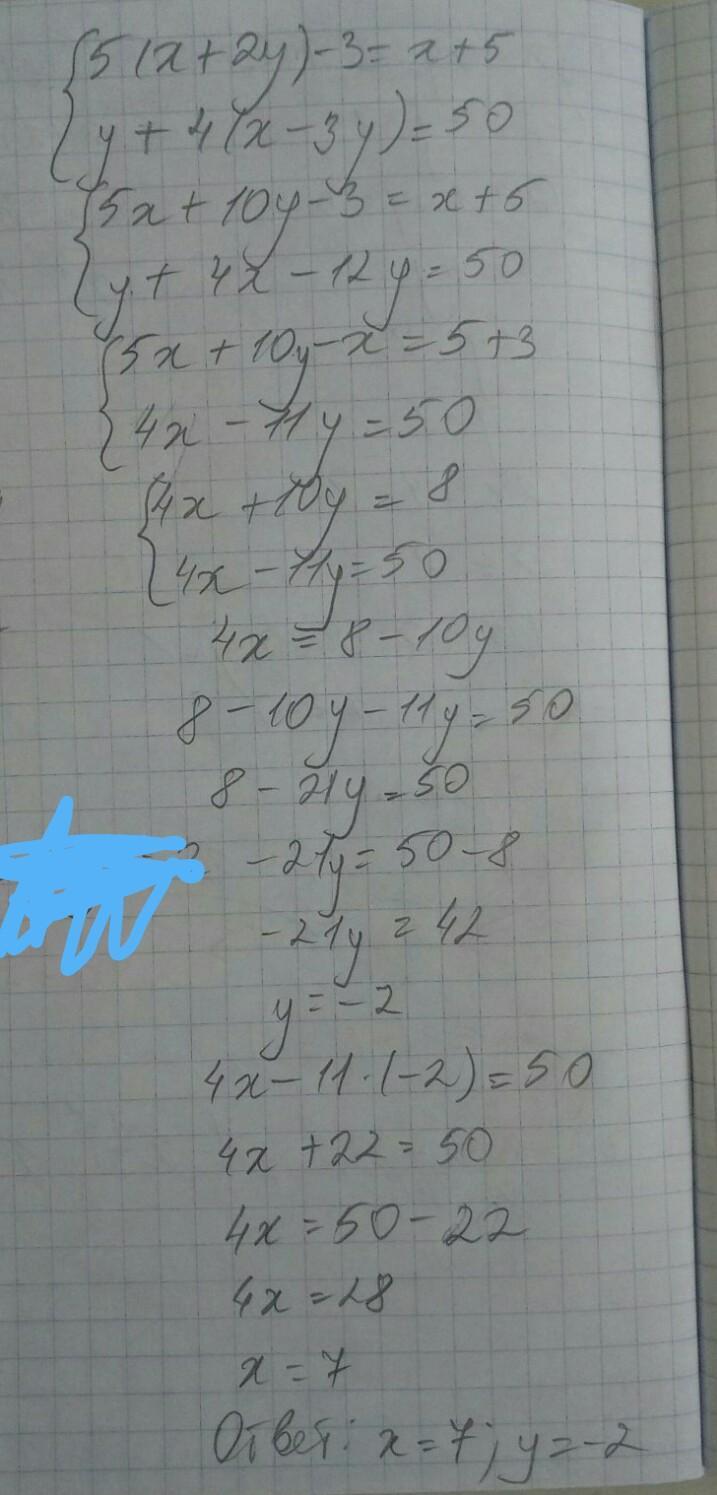 5(x+2y)-3=x+5
y+4(x-3y)=50
5x+10y-3=x+5
y+4x-12y=50
5x+10y-x=5+3
4x-11y=50
4x+10y=8
4x-11y=50
4x=8-10y
8-10y-11y=50
8-21y=50
-21y=50-8
-21y=42
y=-2
4x-11·(-2)=50
4x+22=50
4x=50-22
4x=28
x=7
Ответ: x=7; y=-2